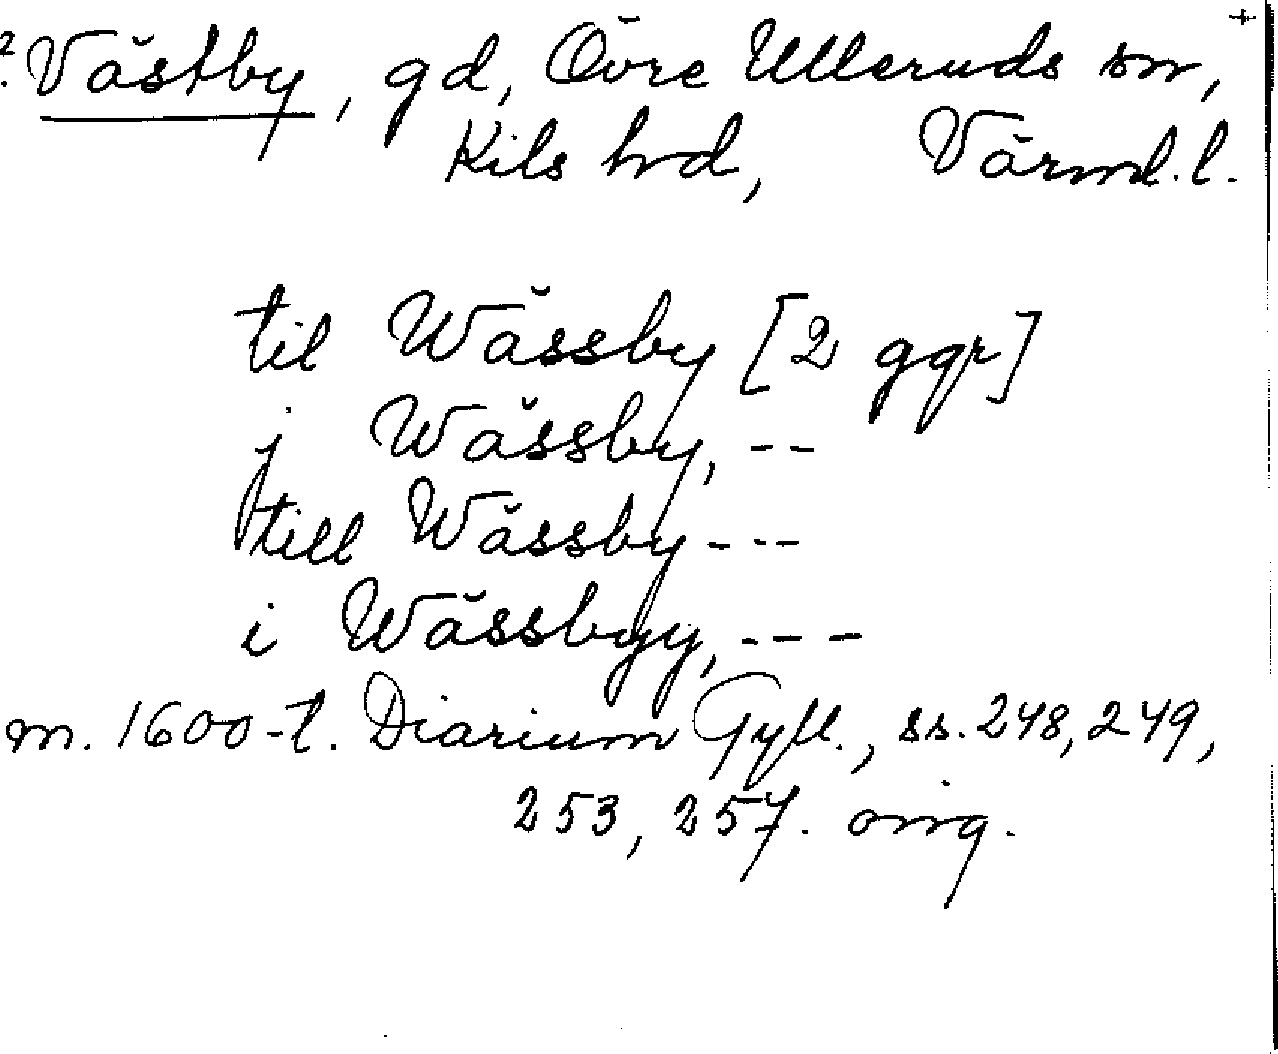 ? Västby, gd, Övre Ulleruds sn,
Kils hrd, Värml. l.
til Wässby [2 ggr]
j Wässby, --
till Wässby ---
i Wässbyy, ---
m. 1600-t. Diarium Gyll., ss. 248, 249,
253, 257. orig.